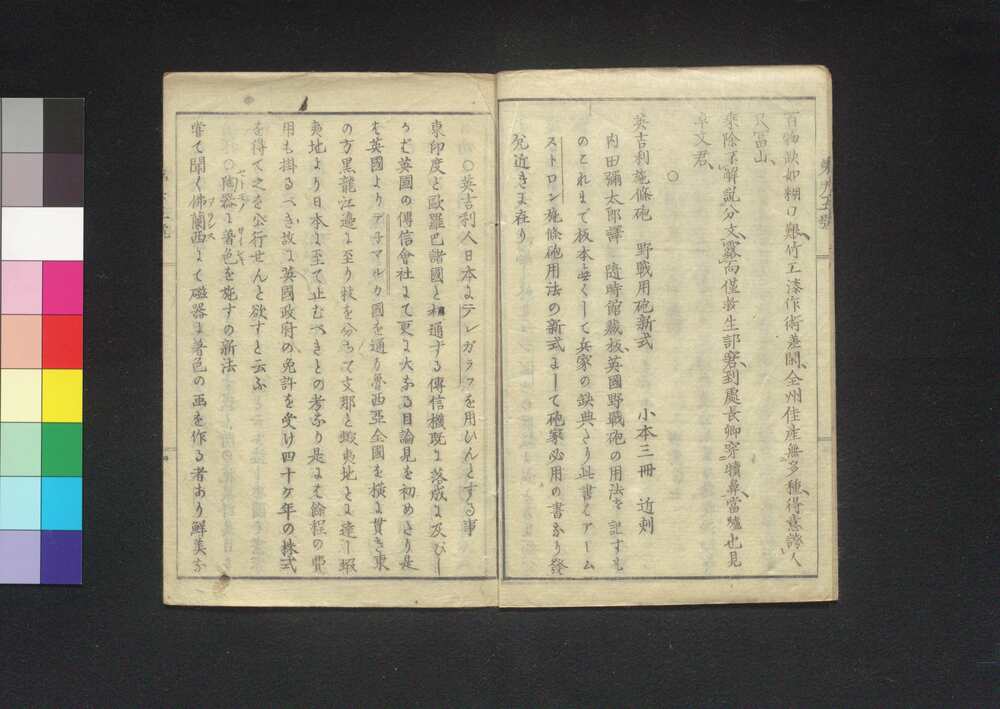 百物缺如糊口艱竹工漆作術差閒全州佳産無多種得意誇人
只富山
乗除不解説分文靄向僅新生部窘到處長卿穿犢鼻當壚也見
卓文君
○
英吉利施條砲 野戰用砲新式 小本三冊 近刻
内田彌太郎譯 隨時館藏板英國野戰砲の用法を記すも
のこれまで板本無くして兵家の缺典たり此書ハアーム
ストロン施條砲用法の新式にして砲家必用の書なり發
兌近きに在り
○英吉利人日本にテレガラフを用ひんとする事
東印度と歐羅巴諸國と相通ずる傳信機既に落成に及びし
かど英國の傳信會社にて更に大なる目論見を初めたり是
は英國よりデ子マルカ國を通り魯西亞全國を横に貫き東
の方黒龍江邊に至り枝を分ちて支那と蝦夷地とに達し蝦
夷地より日本に至て止むべきとの考なり是には餘程の費
用も掛るべき故に英國政府の免許を受け四十ケ年の株式
を得て之を公行せんと欲すと云ふ
○陶器に著色を施すの新法
嘗て聞く佛蘭西フランスにて磁器に著色の画を作る者あり鮮美な